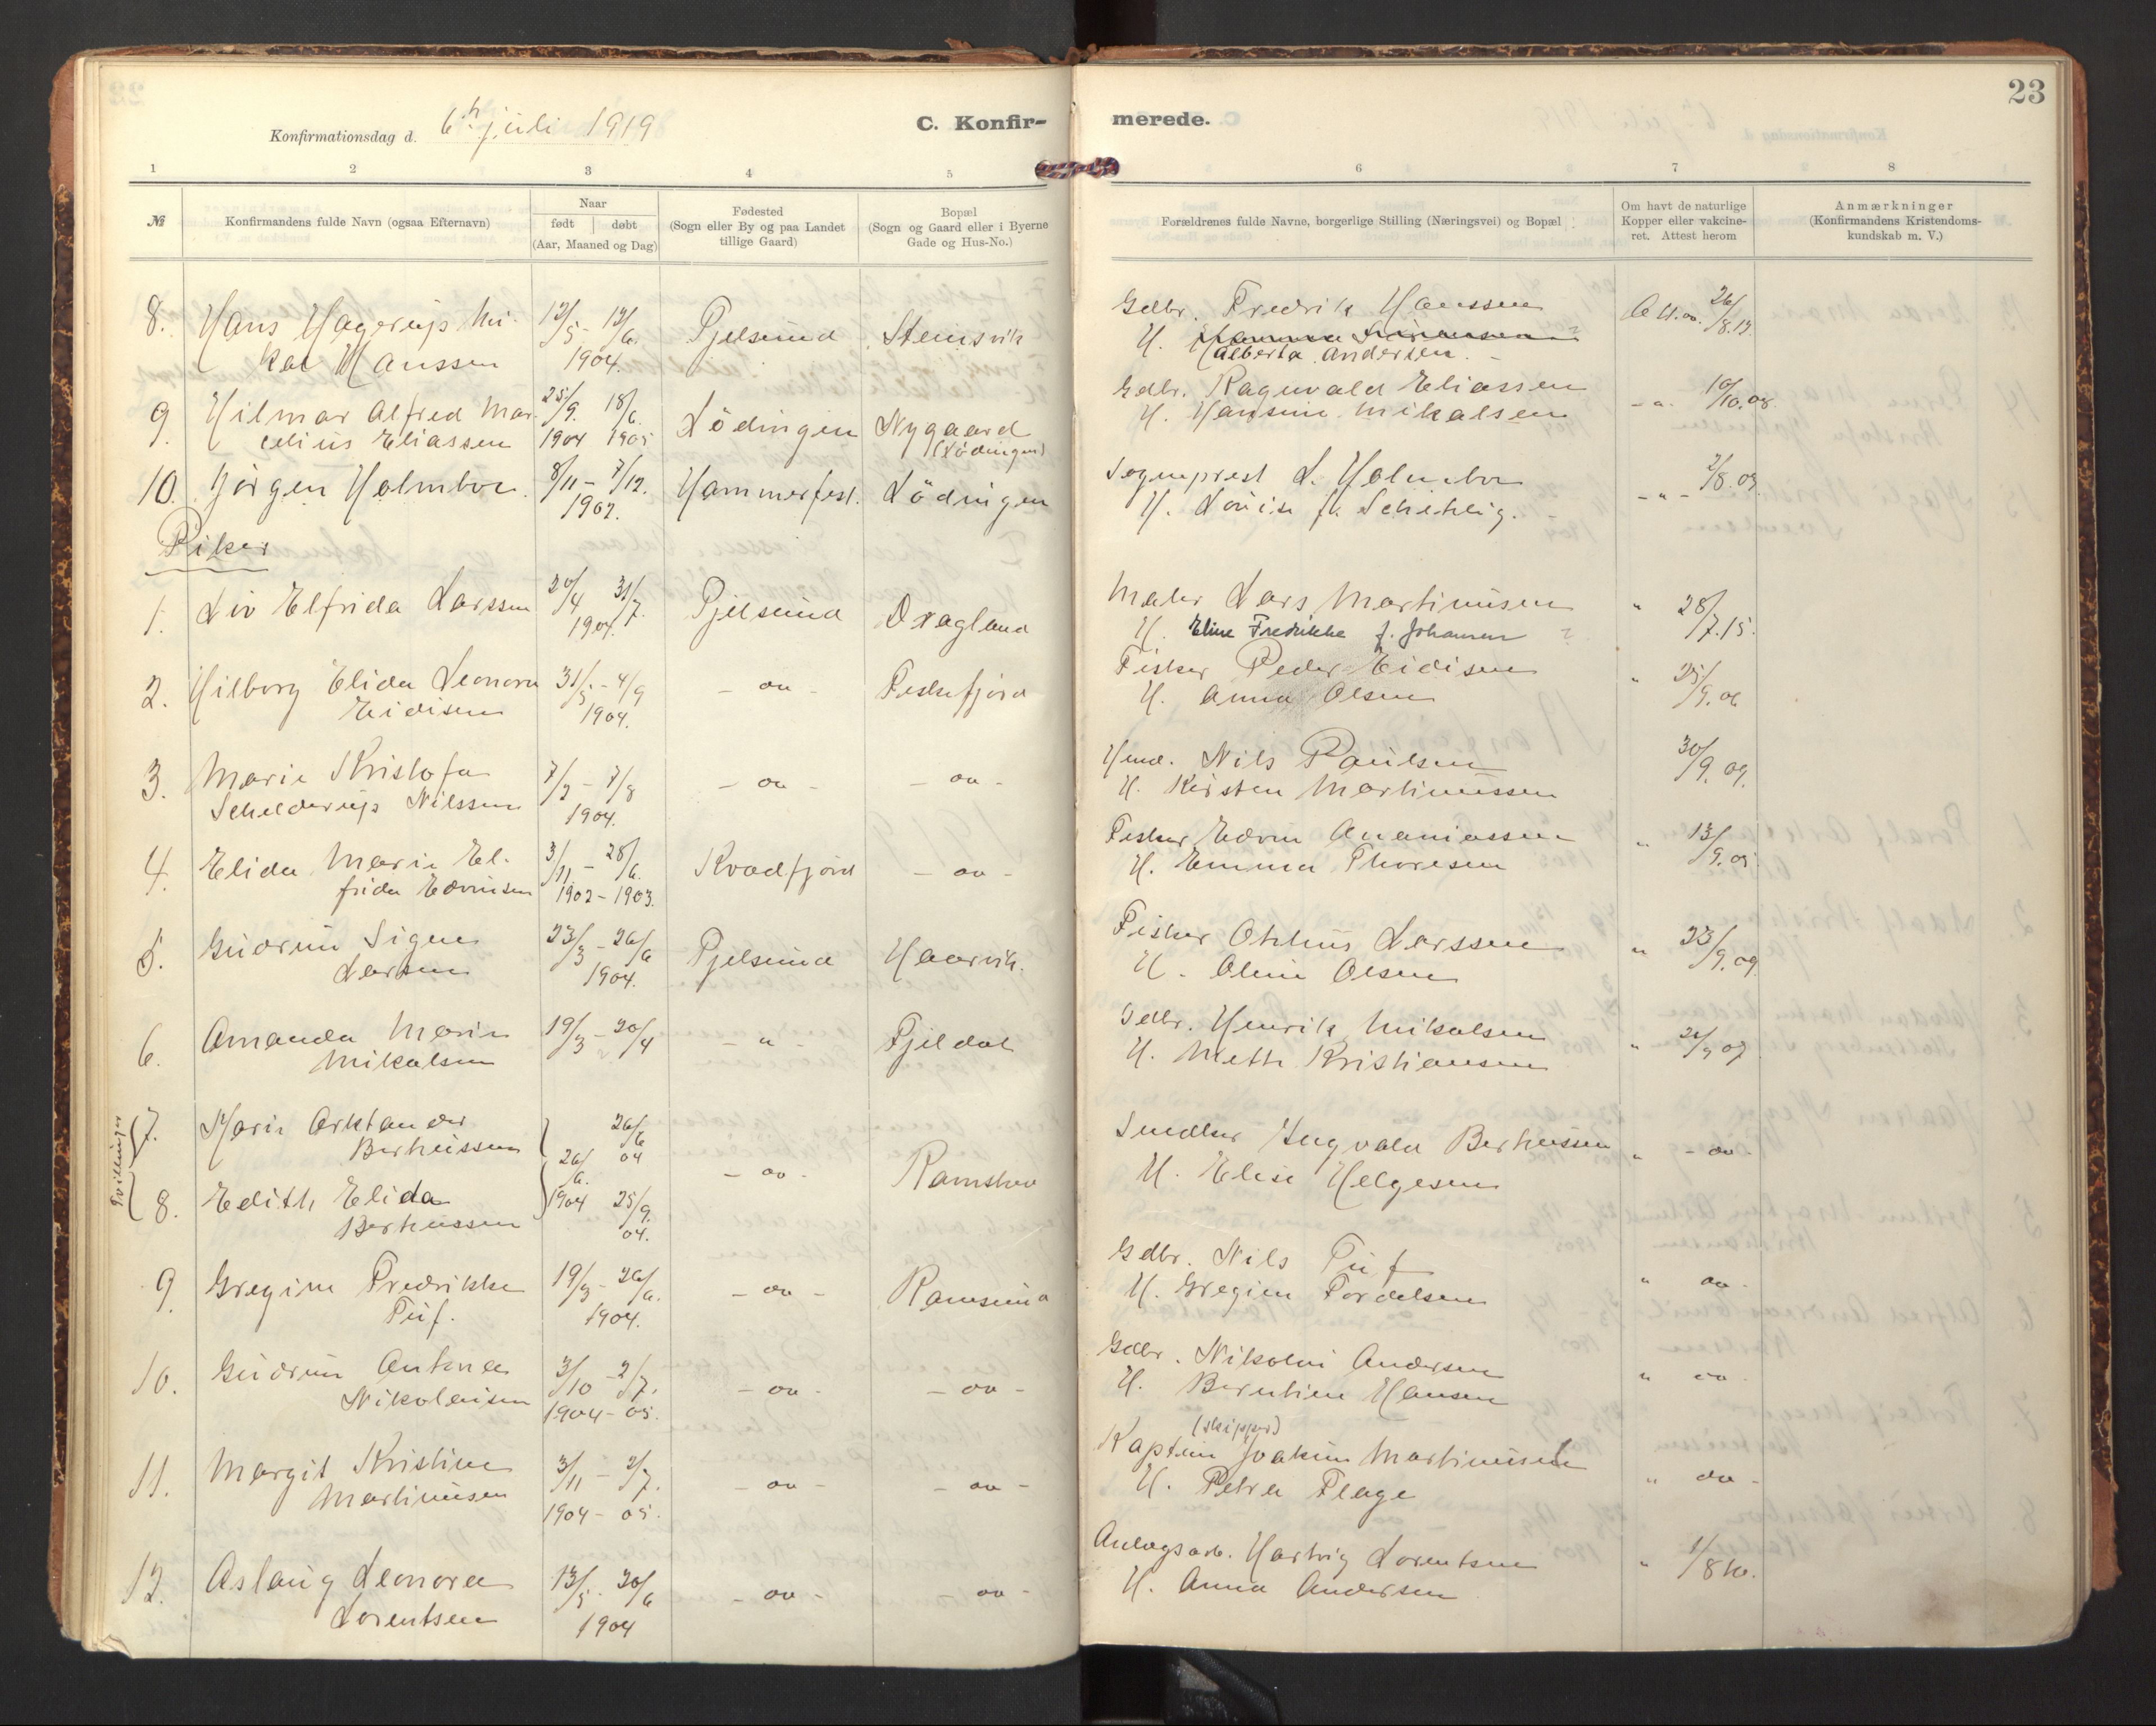 23
Konfirmationsdag d. 6te juli 1919
C. Konfir-
merede.
1 2 3 4 5 6 7 8
№
Konfirmandens fulde Navn (ogsaa Efternavn)
Naar
født | døbt
(Aar, Maaned og Dag)
Fødested
(Sogn eller By og paa Landet
tillige Gaard)
Bopæl
(Sogn og Gaard eller i Byerne
Gade og Hus-No.)
Forældrenes fulde Navne, borgerlige Stilling (Næringsvei) og Bopæl
Om havt de naturlige
Kopper eller vakcine-
ret. Attest herom
Anmærkninger
(Konfirmandens Kristendoms-
kundskab m. V.)
8. Hans Hagerup Mi- 12/5 - 12/6 Fjelsund Stensvik Gdbr. Fredrik Hanssen 26/8.13
kal Hanssen 1904. H.
Alberta Andersen.
9. Hilmar Alfred Mar- 25/9. 18/6. Lödingen Nygaard Gdbr. Ragnvald Eliassen - " - 10/10.08
celius Eliassen 1904 1905 (Lödingen) H. Hansine Mikalsen
10. Jörgen Holmboe. 8/11 - 7/12. Hammerfest. Lödingen Sogneprest L. Holmboe - " - 2/8.09
1902. H. Louise f.
Piker
1. Liv Elfrida Larssen 20/4 31/7. Fjelsund Dragland Maler Lars Martinusen " 28/7.15.
1904. H. Eline Fredrikke f. Johansen ?
2. Hilborg Elida Leonora 31/5 - 4/9 - oo - Fiskefjord Fisker Peder Eidisen " 25/9.06
Eidisen 1904. H. Anna Olsen
3. Marie Kristofa 7/2 - 7/8 - oo - - oo - Hmd. Nils Paulsen 30/9.09.
Schelderup Nilssen 1904. H. Kirsten Martinussen
4. Elida Marie El- 3/11 - 28/6. Kvædfjord - oo - Fisker Edvin Ananiassen " 13/9.05
frida Edvinsen 1902 - 1903. H. Emma Thoresen
5. Gudrun Signe 23/3 - 26/6 Fjelsund Haarvik. Fisker Larssen " 23/9.09
Larsen 1904. H. Oline Olsen
6. Amanda Marie 19/3 - 20/4 - " - Fjeldal Gdbr. Henrik Mikalsen " 07
Mikalsen H. Mette Kristiansen
Tvillinger
7. Marie Arktander 26/6 Snedker Ingvald Berteussen " - oo -
Berteussen 04
26/6. - oo - Ramsbu H. Elise Helgesen
8. Edith Elida 1904 25/9.
Berteussen 04.
9. Gregine Fredrikke 19/3 - 26/6. - oo - Ramsund Gdbr. Nils Tuf " oo -
Tuf. 1904. H. Gregine Tordelsen
10. Gudrun Antona 3/10 - 2/7. - oo - - oo - Gdbr. Nikolai Andersen " oo -
Nikolaisen 1904 - 05. H. Berntine Hansen
(skipper)
11. Margit Kristine 3/11 - 2/7. - oo - - oo - Kaptein Joakim Martinusen " oo -
Martinusen 1904 - 05. H. Petra Plage
12. Aslaug Leonora 13/5 - 20/6 - oo - - oo - Anlægsarb. Hartvig Lorentsen " 1/8 10.
Lorentsen 1904 H. Anna Andersen